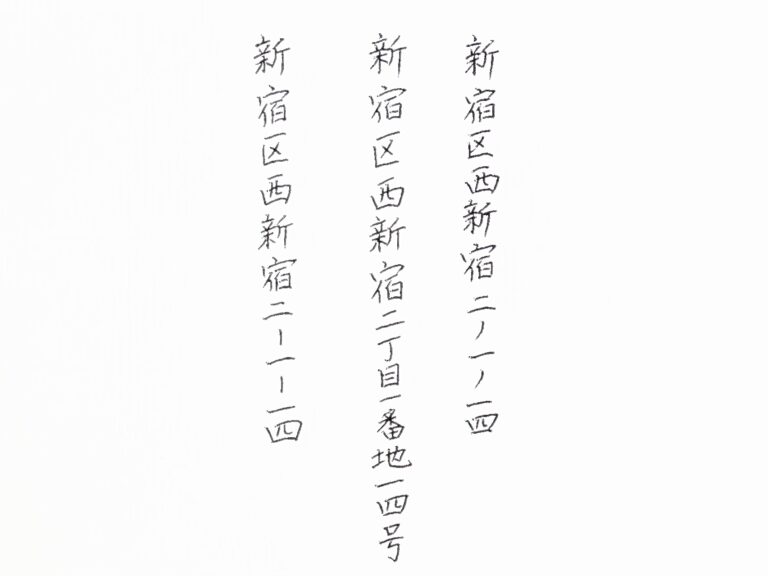 新宿区西新宿二ノ一ノ一四
新宿区西新宿二丁目一番地一四号
新宿区西新宿二ー一ー一四